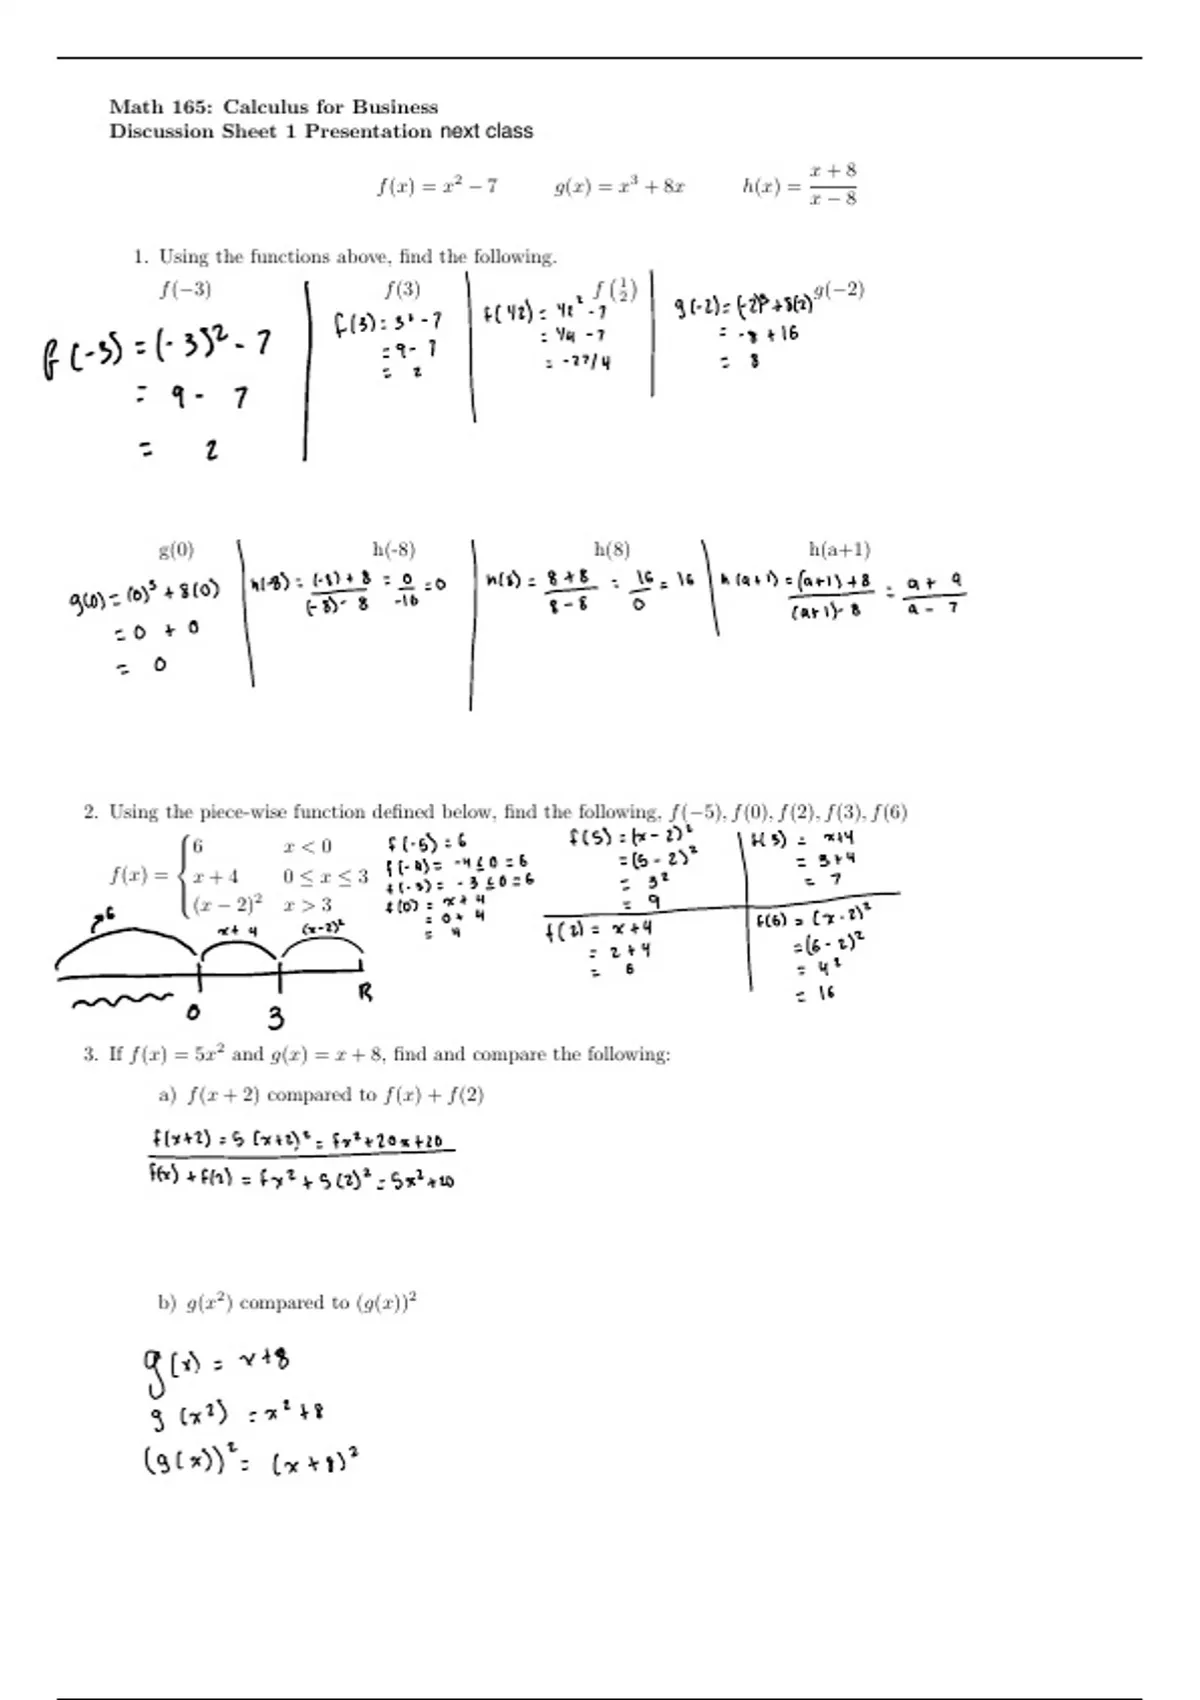 Math 165: Calculus for Business
Discussion Sheet 1 Presentation next class
f(x) = x² − 7    g(x) = x³ + 8x    h(x) = (x + 8)/(x − 8)
1. Using the functions above, find the following.
f(−3)    f(3)    f(1/2)    g(−2)
f(-3) = (-3)² - 7
= 9 - 7
= 2
f(3) = 3² - 7
= 9 - 7
= 2
f(1/2) = 1/2² - 7
= 1/4 - 7
= -27/4
g(-2) = (-2)³ + 8(2)
= -8 + 16
= 8
g(0)    h(-8)    h(8)    h(a+1)
g(0) = (0)³ + 8(0)
= 0 + 0
= 0
h(-8) = ((-8) + 8)/((-8) - 8) = 0/-16 = 0
h(8) = (8 + 8)/(8 - 8) = 16/0 = 16
h(a+1) = ((a+1) + 8)/((a+1) - 8) = (a + 9)/(a - 7)
2. Using the piece-wise function defined below, find the following, f(−5), f(0), f(2), f(3), f(6)
f(x) = { 6    x < 0
x + 4    0 ≤ x ≤ 3
(x − 2)²    x > 3
f(-5) = 6
f(-4) = -4 ≤ 0 = 6
f(-3) = -3 ≤ 0 = 6
f(0) = x + 4
= 0 + 4
= 4
f(5) = (x - 2)²
= (5 - 2)²
= 3²
= 9
f(3) = x+4
= 3+4
= 7
f(2) = x+4
= 2+4
= 6
f(6) = (x - 2)²
= (6 - 2)²
= 4²
= 16
6    x + 4    (x-2)²
0    3    R
3. If f(x) = 5x² and g(x) = x + 8, find and compare the following:
a) f(x + 2) compared to f(x) + f(2)
f(x+2) = 5(x+2)² = 5x² + 20x + 20
f(x) + f(2) = 5x² + 5(2)² = 5x² + 20
b) g(x²) compared to (g(x))²
g(x) = x+8
g(x²) = x² + 8
(g(x))² = (x + 8)²